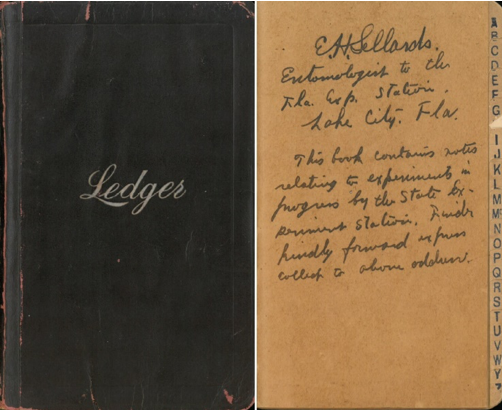 Ledger
E.H. Sellards.
Entomologist to the
Fla. Exp. Station.
Lake City. Fla.
This book contains notes
relating to experiments in
progress by the State Ex-
periment Station. Finder
kindly forward express
collect to above address.
A
B
C
D
E
F
G
I
J
K
L
M
N
O
P
Q
R
S
T
U
V
W
Y